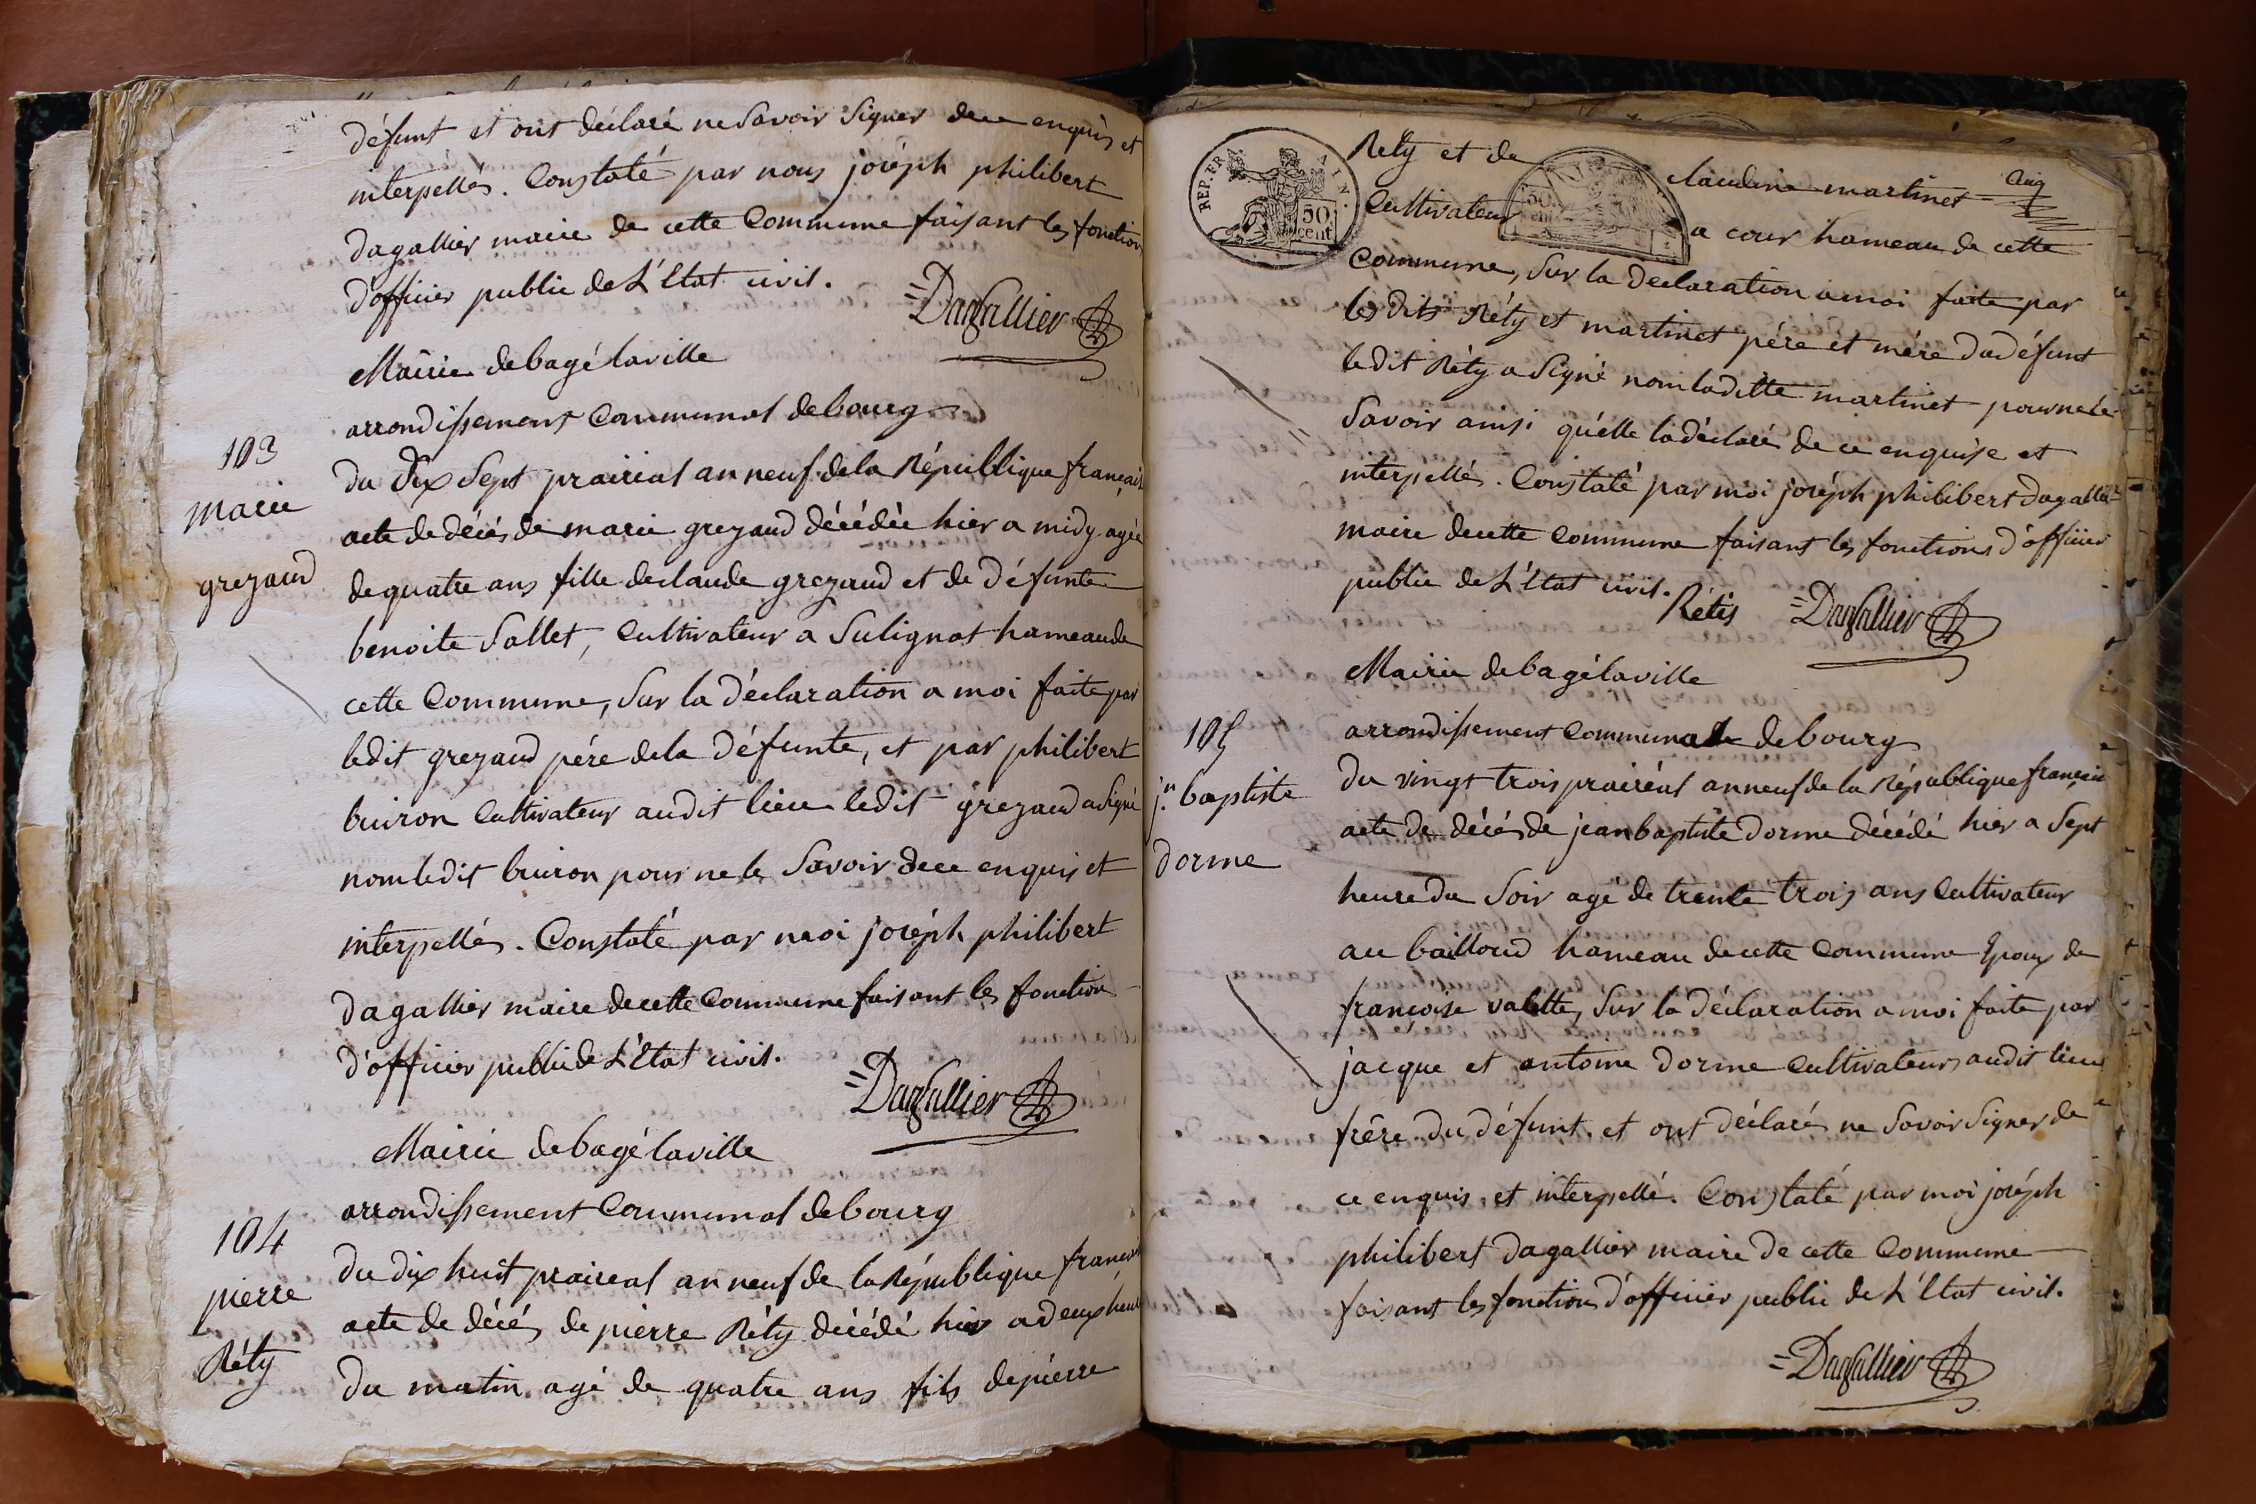 défunt et ont déclaré ne savoir signer de ce enquis et
interpellés. Constaté par nous joséph philibert
dagallier maire de cette Commune faisant les fonction
d'officier public de L'Etat civil.
=Dagallier
Mairie de bagé la ville
arrondissement Communal de bourg
103
marie
grezaud
du Dix Sept prairial an neuf de la République français
acte de décés de marie grezaud décédée hier a midy agée
de quatre ans fille de claude grezaud et de défunte
benoite Sallet, Cultivateur a Sulignat hameau de
cette Commune, Sur la déclaration a moi faite par
ledit grezaud pére dela défunte, et par philibert
buiron Cultivateur audit lieu ledit grezaud a signé
nom ledit buiron pour ne le Savoir de ce enquis et
interpellés. Constaté par moi joséph philibert
dagallier maire de cette Commune faisant les fonction
d'officier public de L'Etat civil.
=Dagallier
Mairie de bagé la ville
arrondissement Communal de bourg
104
pierre
Réty
du dix huit praireal an neuf de la République francai
acte de décés de pierre Réty décédé hier a deux heure
du matin agé de quatre ans fils de piérre
REP. FR. AIN.
50 cent
Réty et de claudine martinet
Cultivateur a cour hameau de cette
Commune, Sur la declaration a moi faite par
les dits Réty et martinet pére et mére du défunt
ledit Réty a Signé nom laditte martinet pour ne le
Savoir ainsi qu'elle la déclaré de ce enquise et
interpellés. Constaté par moi joséph philibert dagallier
maire de cette Commune faisant les fonctions d'officier
public de L'Etat civil.
Rétis =Dagallier
Mairie de bagé la ville
arrondissement Communal de bourg
105
j.n baptiste
dorme
du vingt trois prairéal an neuf de la République français
acte de décés de jean baptiste dorme décédé hier a Sept
heure du Soir agé de trente trois ans Cultivateur
au bailloud hameau de cette Commune Epoux de
françoise valette, Sur la déclaration a moi faite par
jacque et antoine dorme Cultivateurs audit lieu
frére du défunt et ont déclaré ne Savoir Signer de
ce enquis et interpellé. Constaté par moi joséph
philibert dagallier maire de cette Commune
faisant les fonction d'officier public de L'Etat civil.
=Dagallier